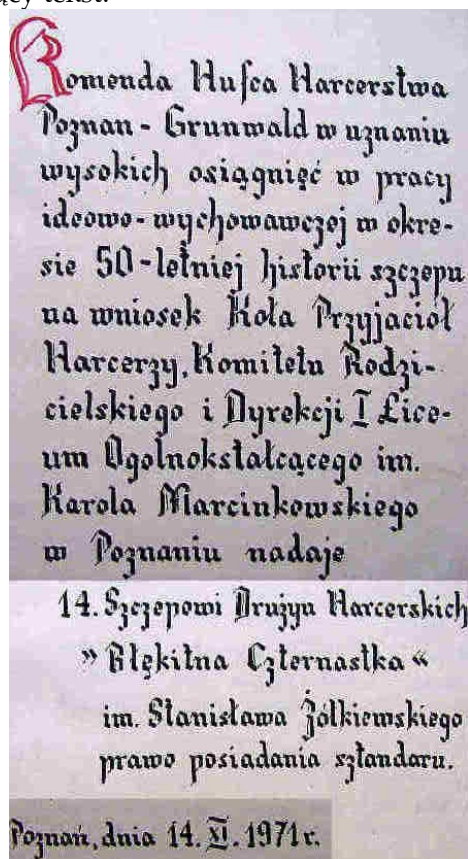 ący tekst.
Komenda Hufca Harcerstwa
Poznan - Grunwald w uznaniu
wysokich osiągnięć w pracy
ideowo-wychowawczej w okre-
sie 50-letniej historii szczepu
na wniosek Koła Przyjaciół
Harcerzy, Komitetu Rodzi-
cielskiego i Dyrekcji I Lice-
um Ogolnokstałcącego im.
Karola Marcinkowskiego
w Poznaniu nadaje
14. Szczepowi Drużyn Harcerskich
" Błękitna Czternastka "
im. Stanisława Żółkiewskiego
prawo posiadania sztandaru.
Poznań, dnia 14. XI. 1971 r.